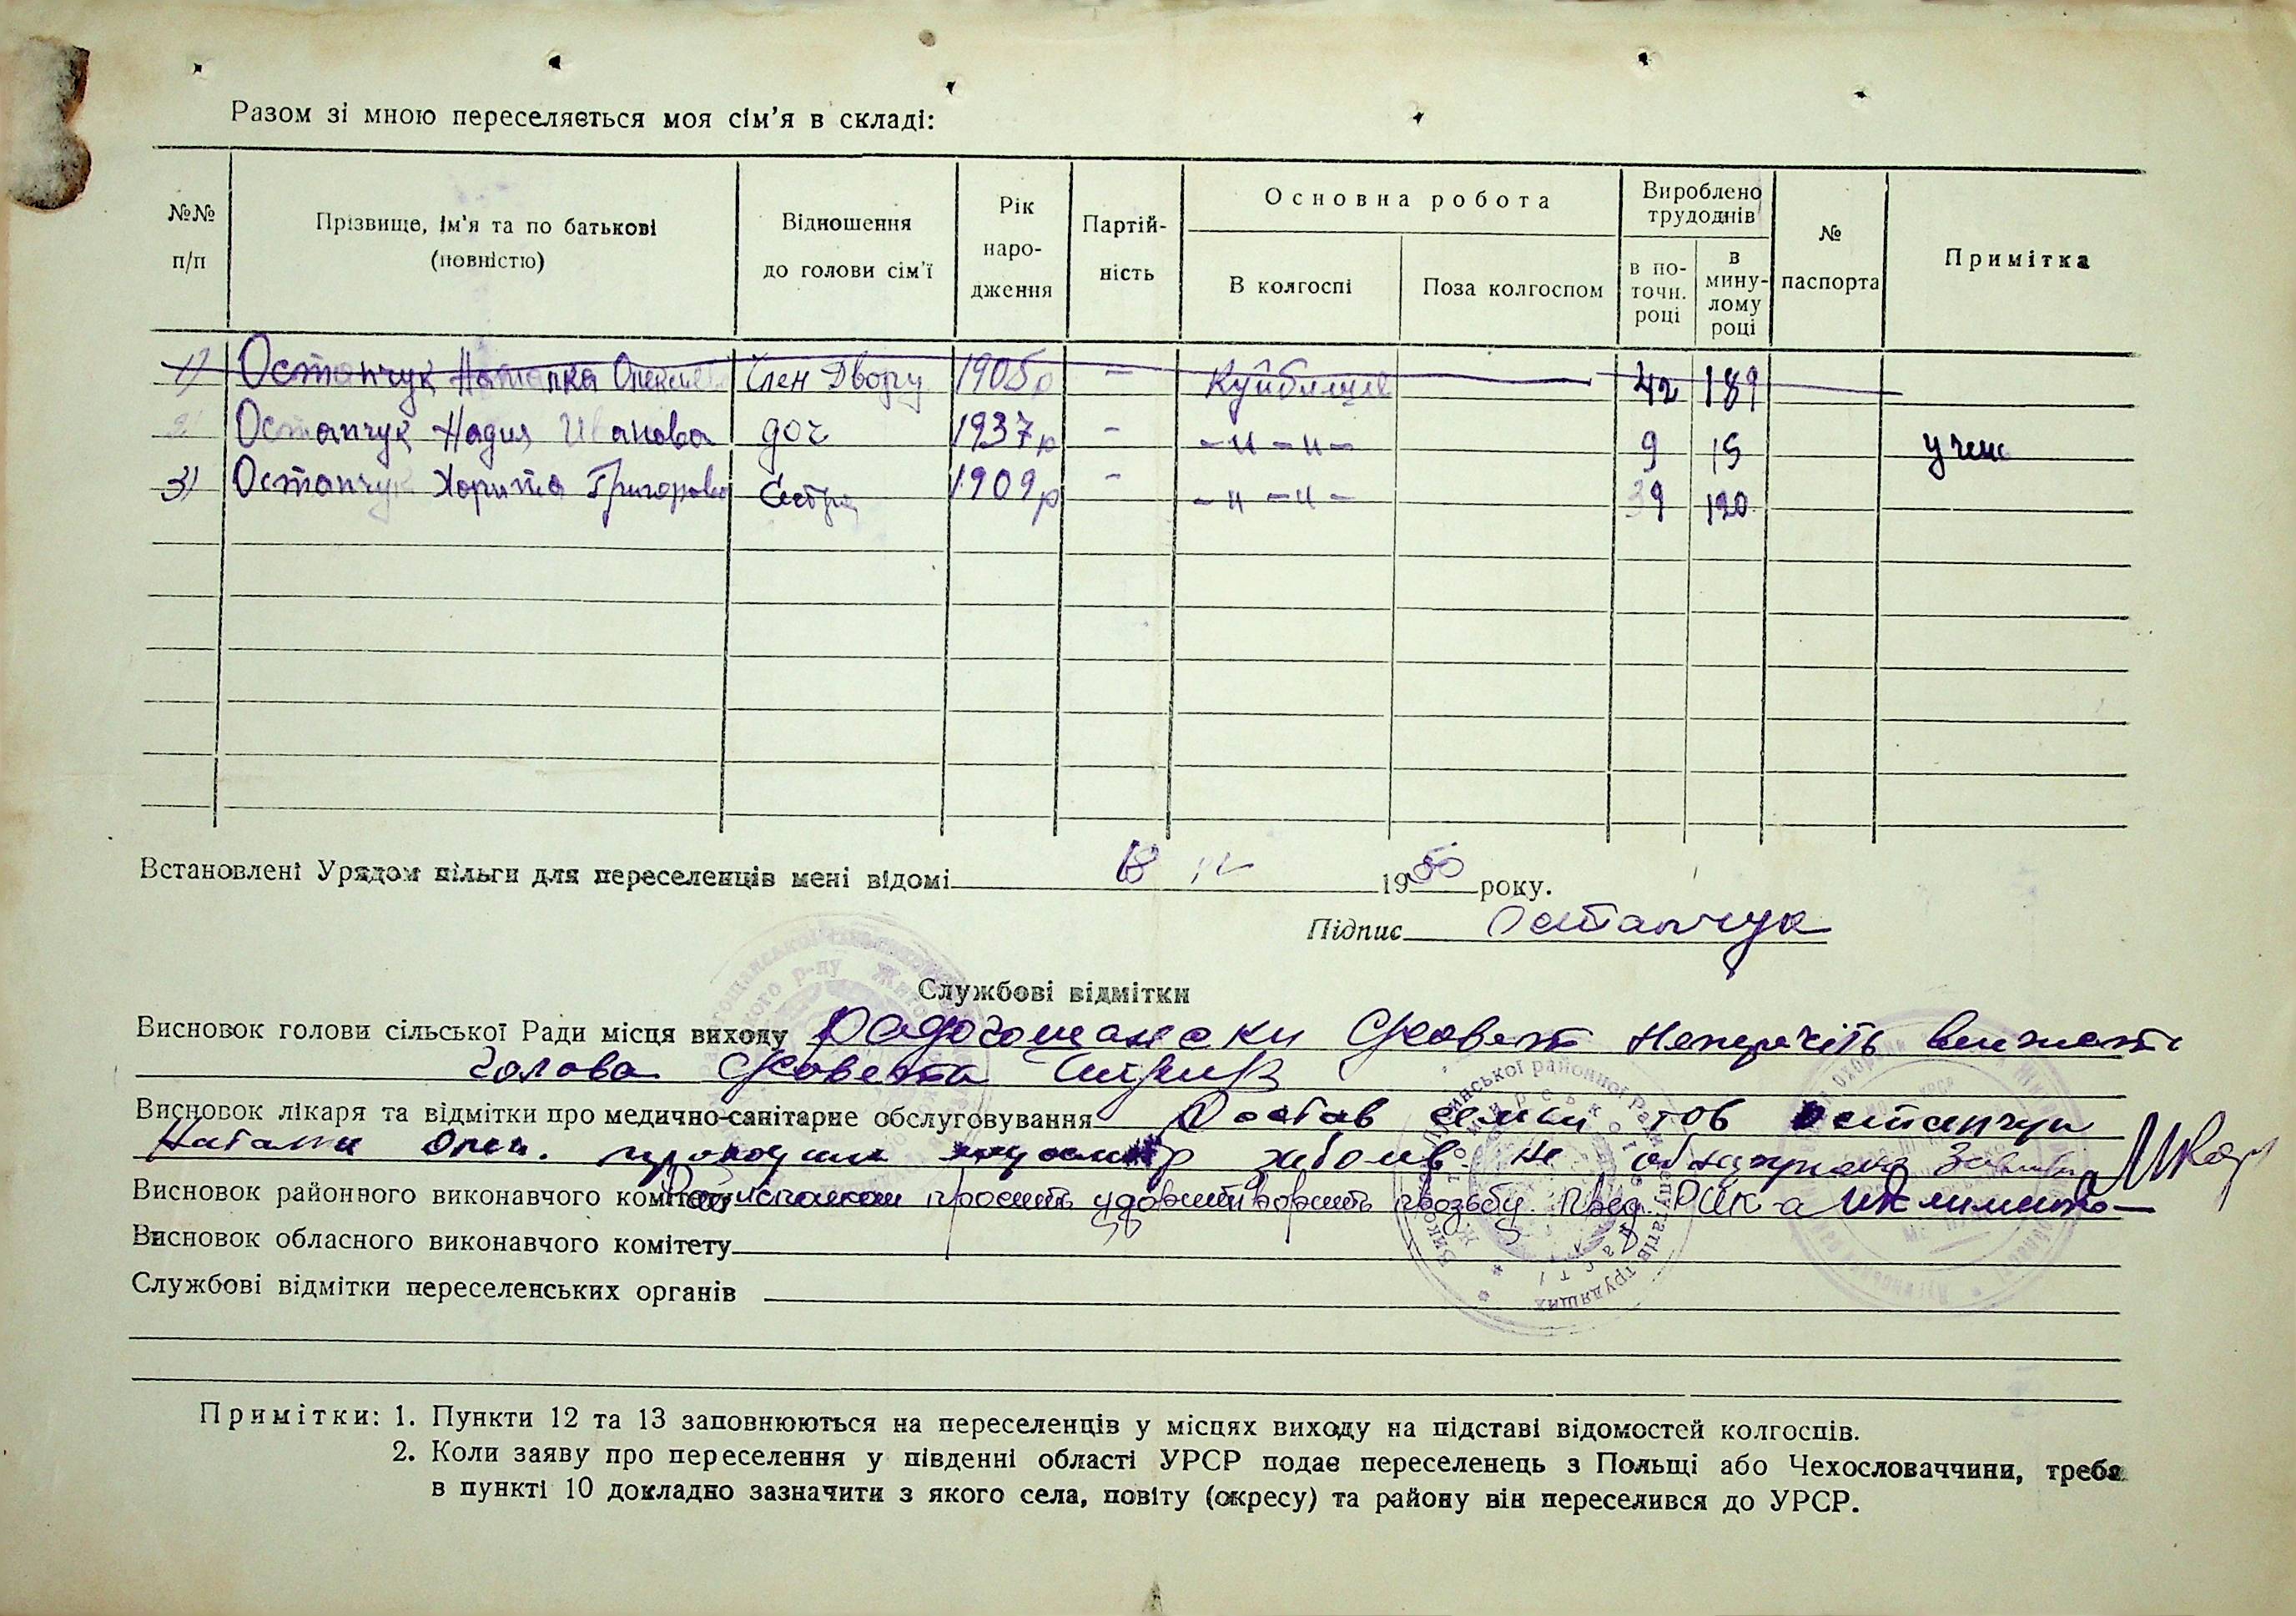 Разом зі мною переселяється моя сім'я в складі:
№№ п/п
Прізвище, ім'я та по батькові (повністю)
Відношення до голови сім'ї
Рік народження
Партійність
Основна робота
В колгоспі
Поза колгоспом
Вироблено трудоднів
в поточн. році
в минулому році
№ паспорта
Примітка
1) Остапчук Наталка Член Двору 1905р - 42 189
2) Остапчук Надия Иванова доч 1937р - -"-"- 9 15 учен
3) Остапчук Хорита Григоровн Сестра 1909р - -"-"- 39 120
Встановлені Урядом пільги для переселенців мені відомі 18 IV 1950 року.
Підпис Остапчук
Службові відмітки
Висновок голови сільської Ради місця виходу
голова
Висновок лікаря та відмітки про медично-санітарне обслуговування Состав семьи тов Остапчук
Не обнаружено
Висновок районного виконавчого комітету Райисполком просить удовлетворить прозьбу. Пред. РИК-а
Висновок обласного виконавчого комітету
Службові відмітки переселенських органів
Примітки: 1. Пункти 12 та 13 заповнюються на переселенців у місцях виходу на підставі відомостей колгоспів.
2. Коли заяву про переселення у південні області УРСР подає переселенець з Польщі або Чехословаччини, треба
в пункті 10 докладно зазначити з якого села, повіту (окресу) та району він переселився до УРСР.